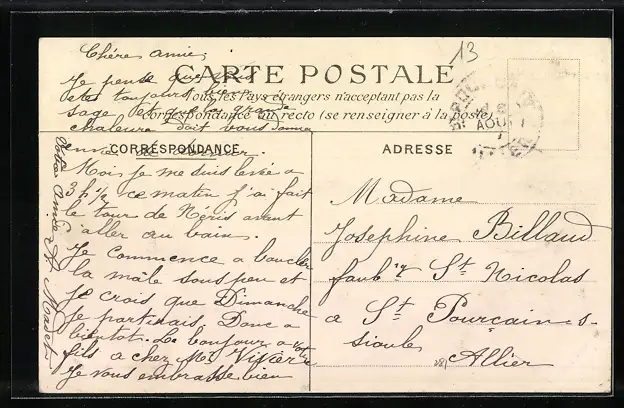 13
Chère amie,
Je pense que vous
CARTE POSTALE
êtes toujours bien
Tous les Pays étrangers n'acceptant pas la
sage et que la grande
correspondance au recto (se renseigner à la poste)
chaleur doit vous donner
AOU
CORRESPONDANCE
Moi je me suis levée a
3 h 1/2 ce matin j'ai fait
le tour de Néris avant
d'aller au bain.
Je commence a boucler
la mâle sous peu et
je crois que Dimanche
je partirais Donc a
bientôt. Le bonjour a votre
fils a chez Mr
Je vous embrasse bien
Votre Amie
ADRESSE
Madame
Josephine Billaud
faub^g St Nicolas
a St Pourçain-s-
sioule
Allier